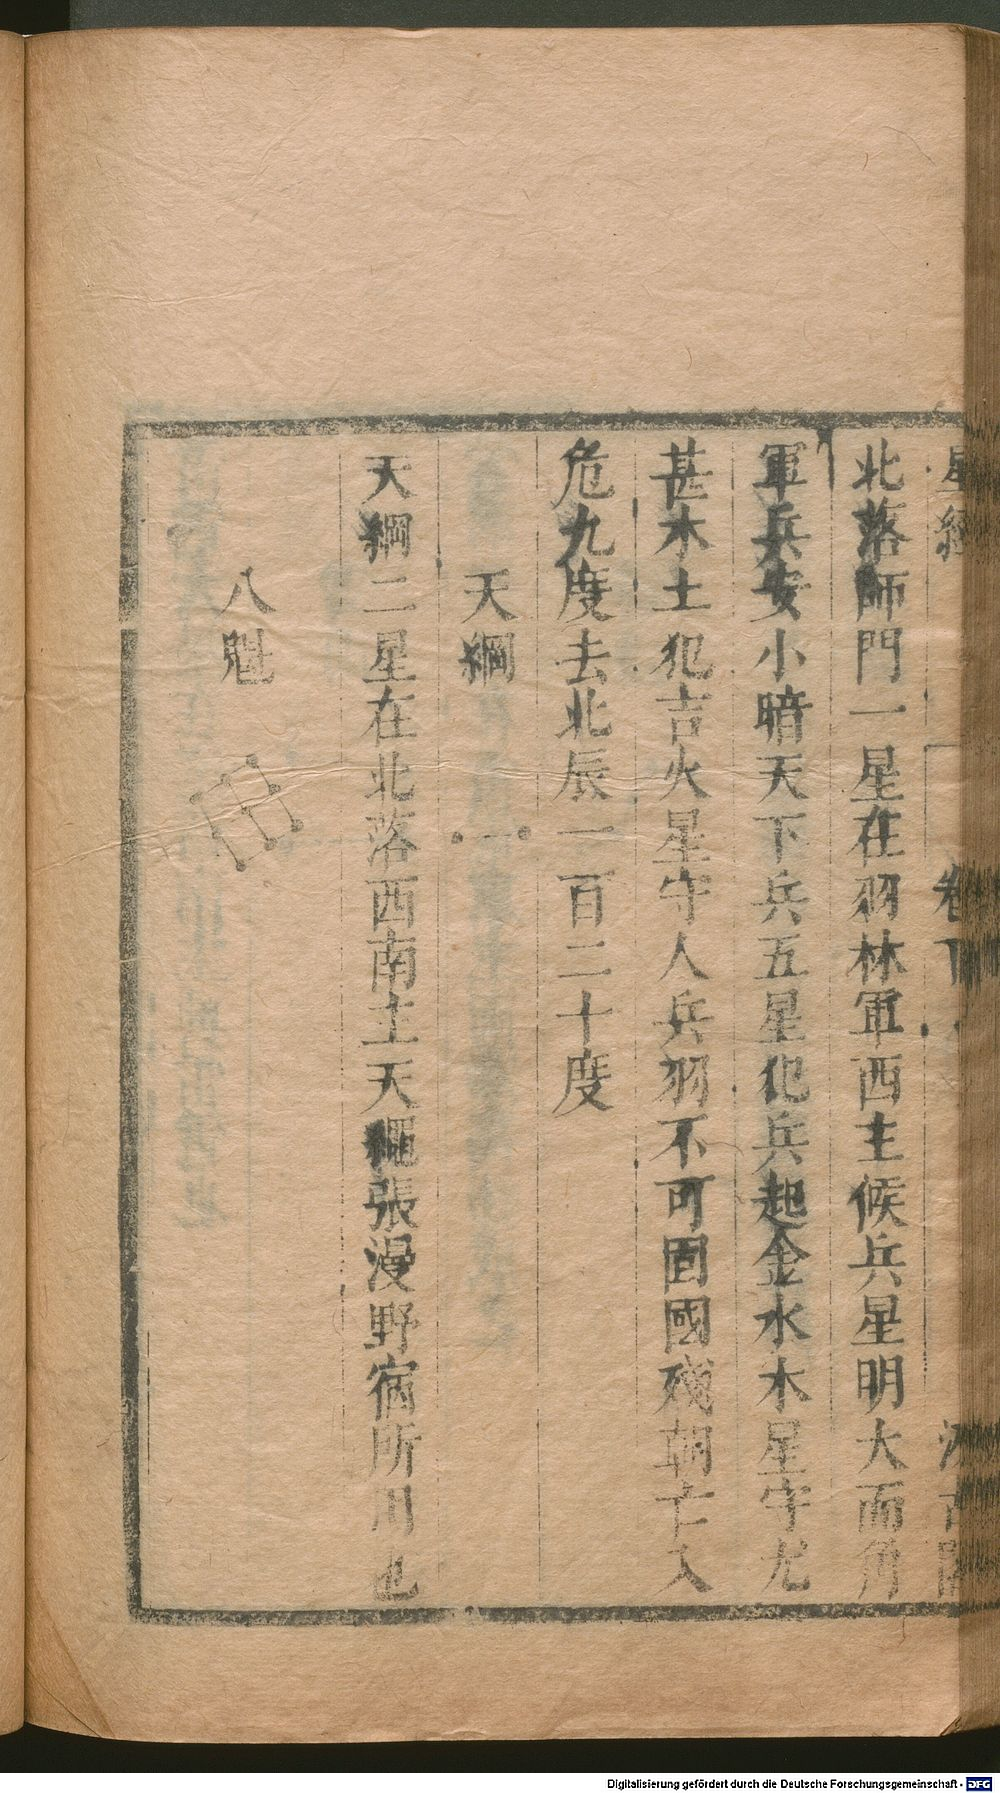 星經
卷下
汲古閣
北落師門一星在羽林軍西主候兵星明大而角
軍兵安小暗天下兵五星犯兵起金水木星守尤
甚木土犯吉火星守人兵羽不可固國殘朝亡入
危九度去北辰一百二十度
天綱
天綱二星在北落西南主天繩張漫野宿所用也
八魁
Digitalisierung gefördert durch die Deutsche Forschungsgemeinschaft - DFG